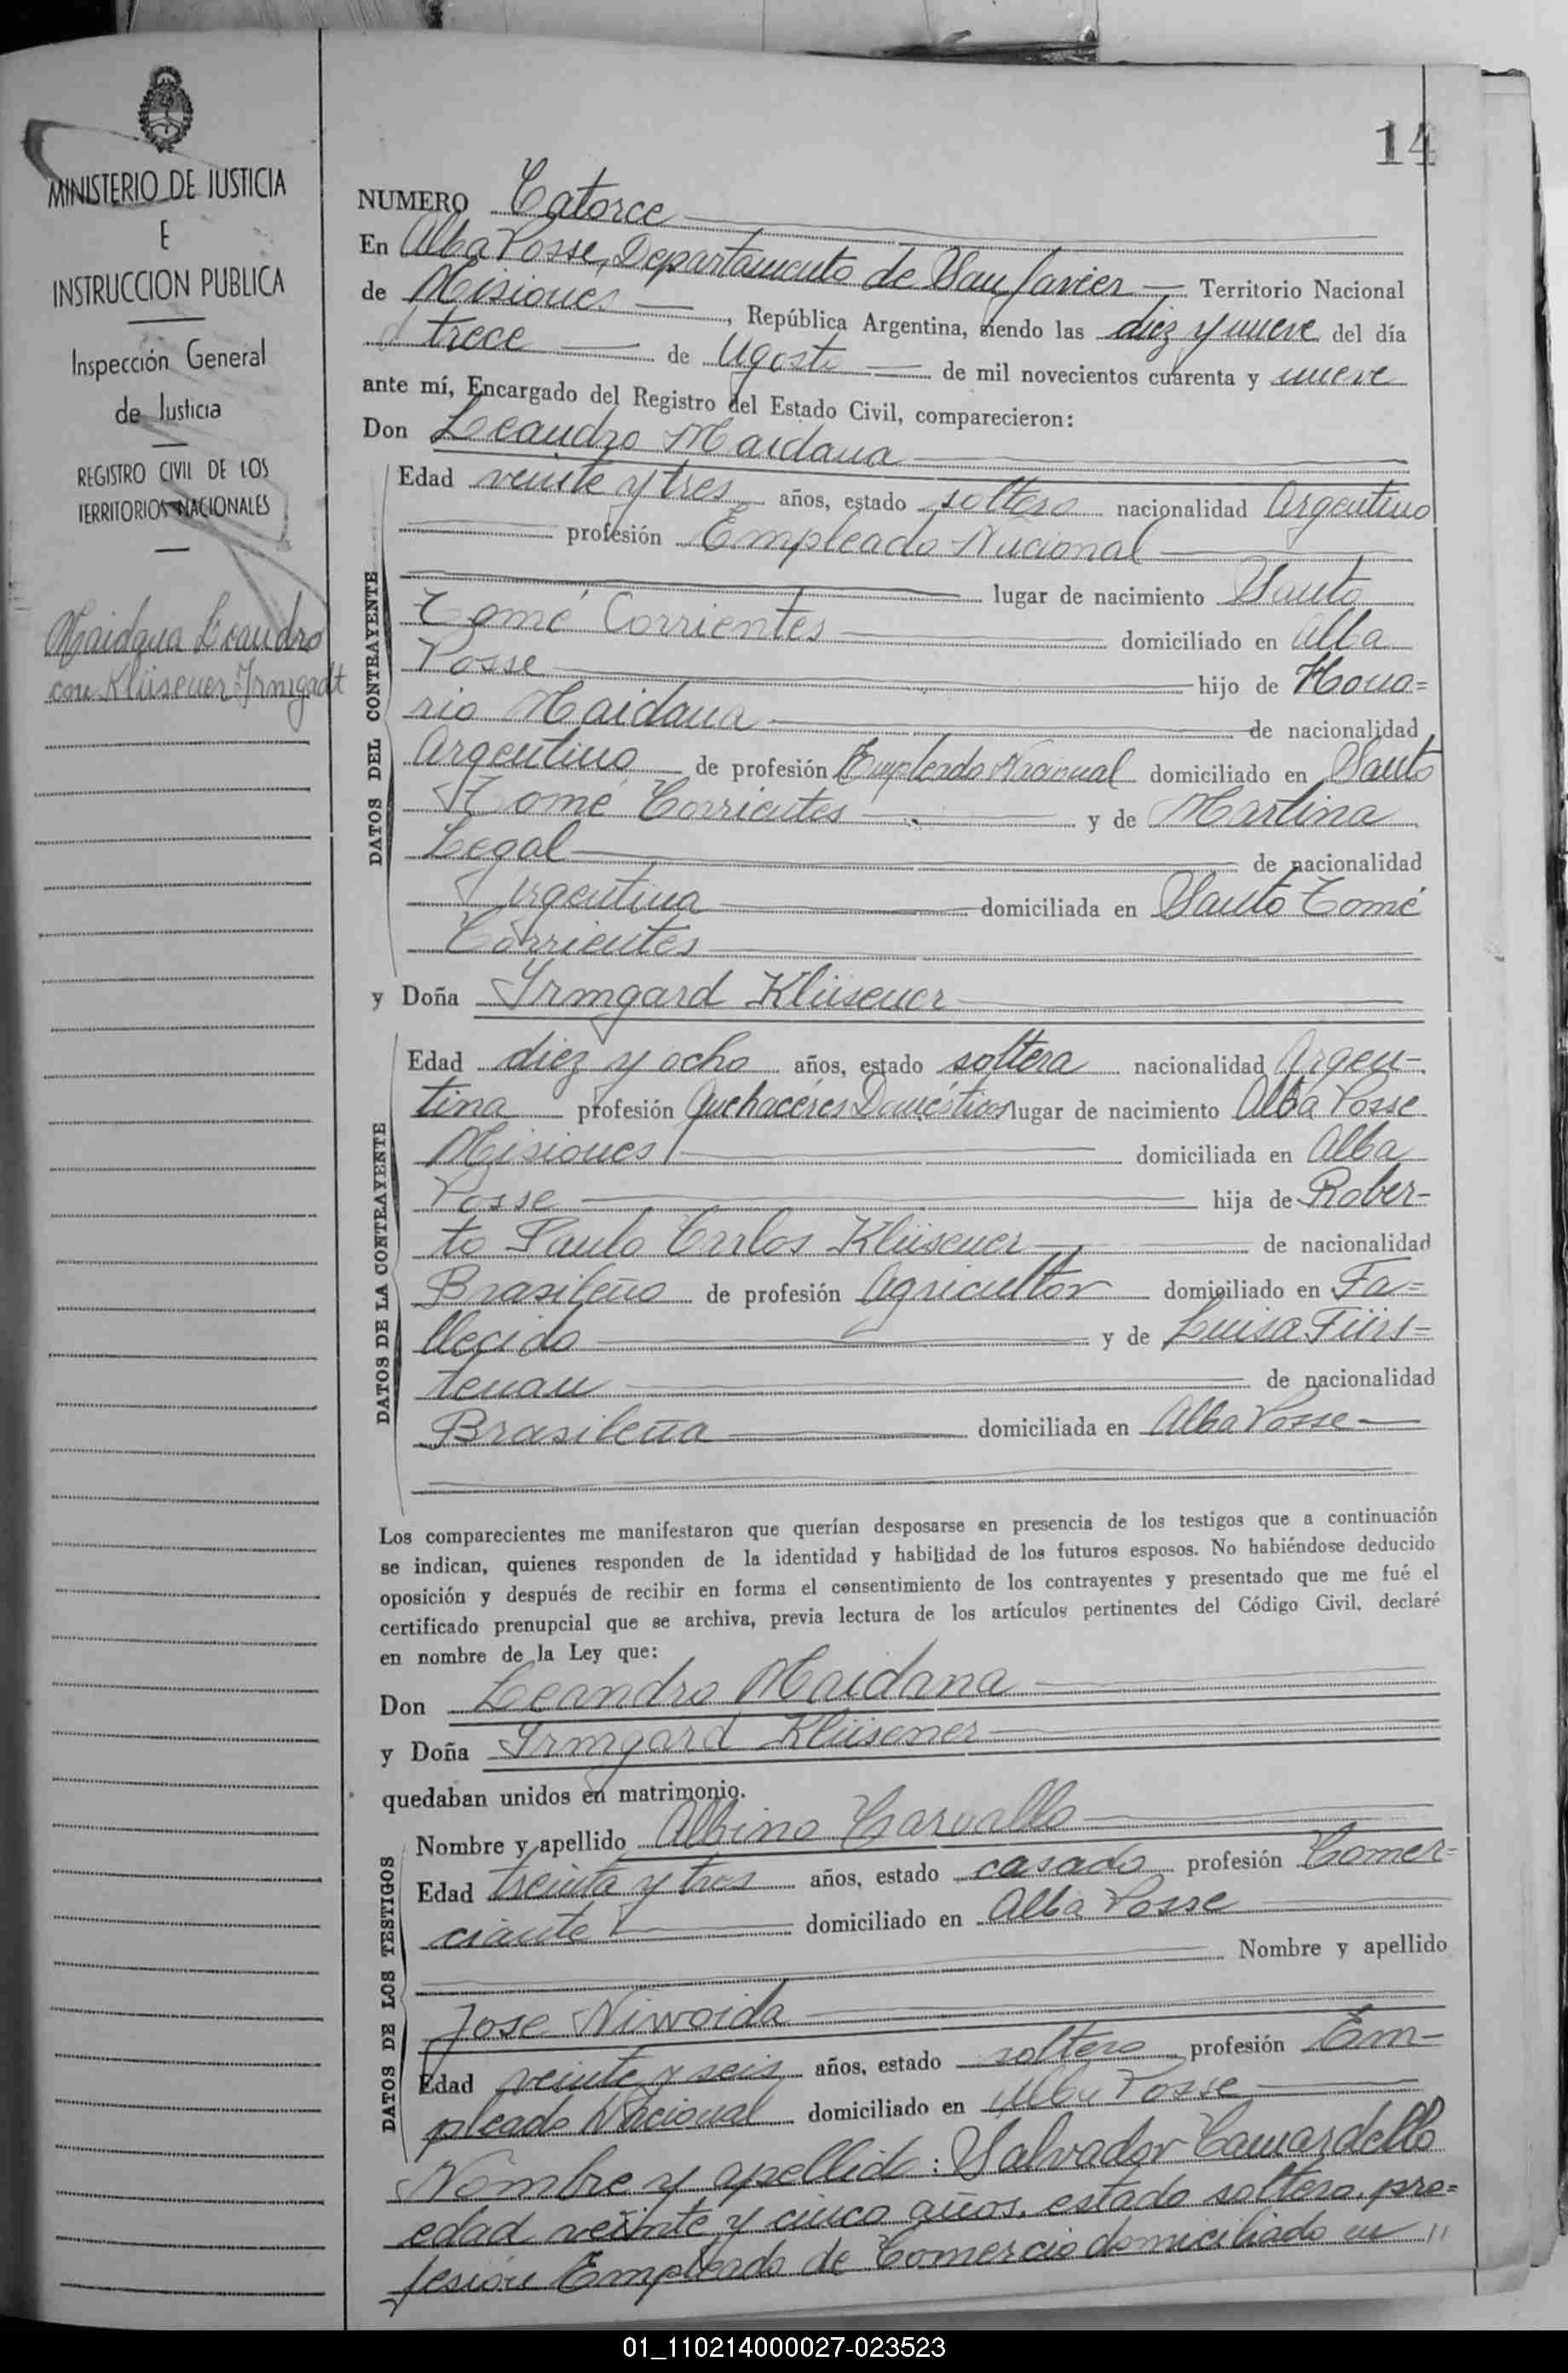 14
MINISTERIO DE JUSTICIA
E
INSTRUCCION PUBLICA
Inspección General
de Justicia
REGISTRO CIVIL DE LOS
TERRITORIOS NACIONALES
Maidana Leandro
con Klüsener Irmgadt
NUMERO Catorce
En Alba Posse, Departamento de San Javier Territorio Nacional
de Misiones, República Argentina, siendo las diez y nueve del día
trece de Agosto de mil novecientos cuarenta y nueve
ante mí, Encargado del Registro del Estado Civil, comparecieron:
Don Leandro Maidana
DATOS DEL CONTRAYENTE
Edad veinte y tres años, estado soltero nacionalidad Argentino
profesión Empleado Nacional
lugar de nacimiento Santo
Tomé Corrientes domiciliado en Alba
Posse hijo de Hono=
rio Maidana de nacionalidad
Argentino de profesión Empleado Nacional domiciliado en Santo
Tomé Corrientes y de Martina
Legal de nacionalidad
Argentina domiciliada en Santo Tomé
Corrientes
y Doña Irmgard Klüsener
DATOS DE LA CONTRAYENTE
Edad diez y ocho años, estado soltera nacionalidad Argen-
tina profesión Quehaceres Domésticos lugar de nacimiento Alba Posse
Misiones domiciliada en Alba
Posse hija de Rober-
to Paulo Carlos Klüsener de nacionalidad
Brasileño de profesión Agricultor domiciliado en Fa=
llecido y de Luisa Fürs=
tenau de nacionalidad
Brasileña domiciliada en Alba Posse
Los comparecientes me manifestaron que querían desposarse en presencia de los testigos que a continuación
se indican, quienes responden de la identidad y habilidad de los futuros esposos. No habiéndose deducido
oposición y después de recibir en forma el consentimiento de los contrayentes y presentado que me fué el
certificado prenupcial que se archiva, previa lectura de los artículos pertinentes del Código Civil, declaré
en nombre de la Ley que:
Don Leandro Maidana
y Doña Irmgard Klüsener
quedaban unidos en matrimonio.
DATOS DE LOS TESTIGOS
Nombre y apellido Albino Carvallo
Edad treinta y tres años, estado casado profesión Comer=
ciante domiciliado en Alba Posse
Nombre y apellido
Jose
Edad veinte y seis años, estado soltero profesión Em-
pleado Nacional domiciliado en Alba Posse
Nombre y apellido: Salvador Camardello
edad veinte y cinco años, estado soltero, pro=
fesión Empleado de Comercio domiciliado en "
01_110214000027-023523